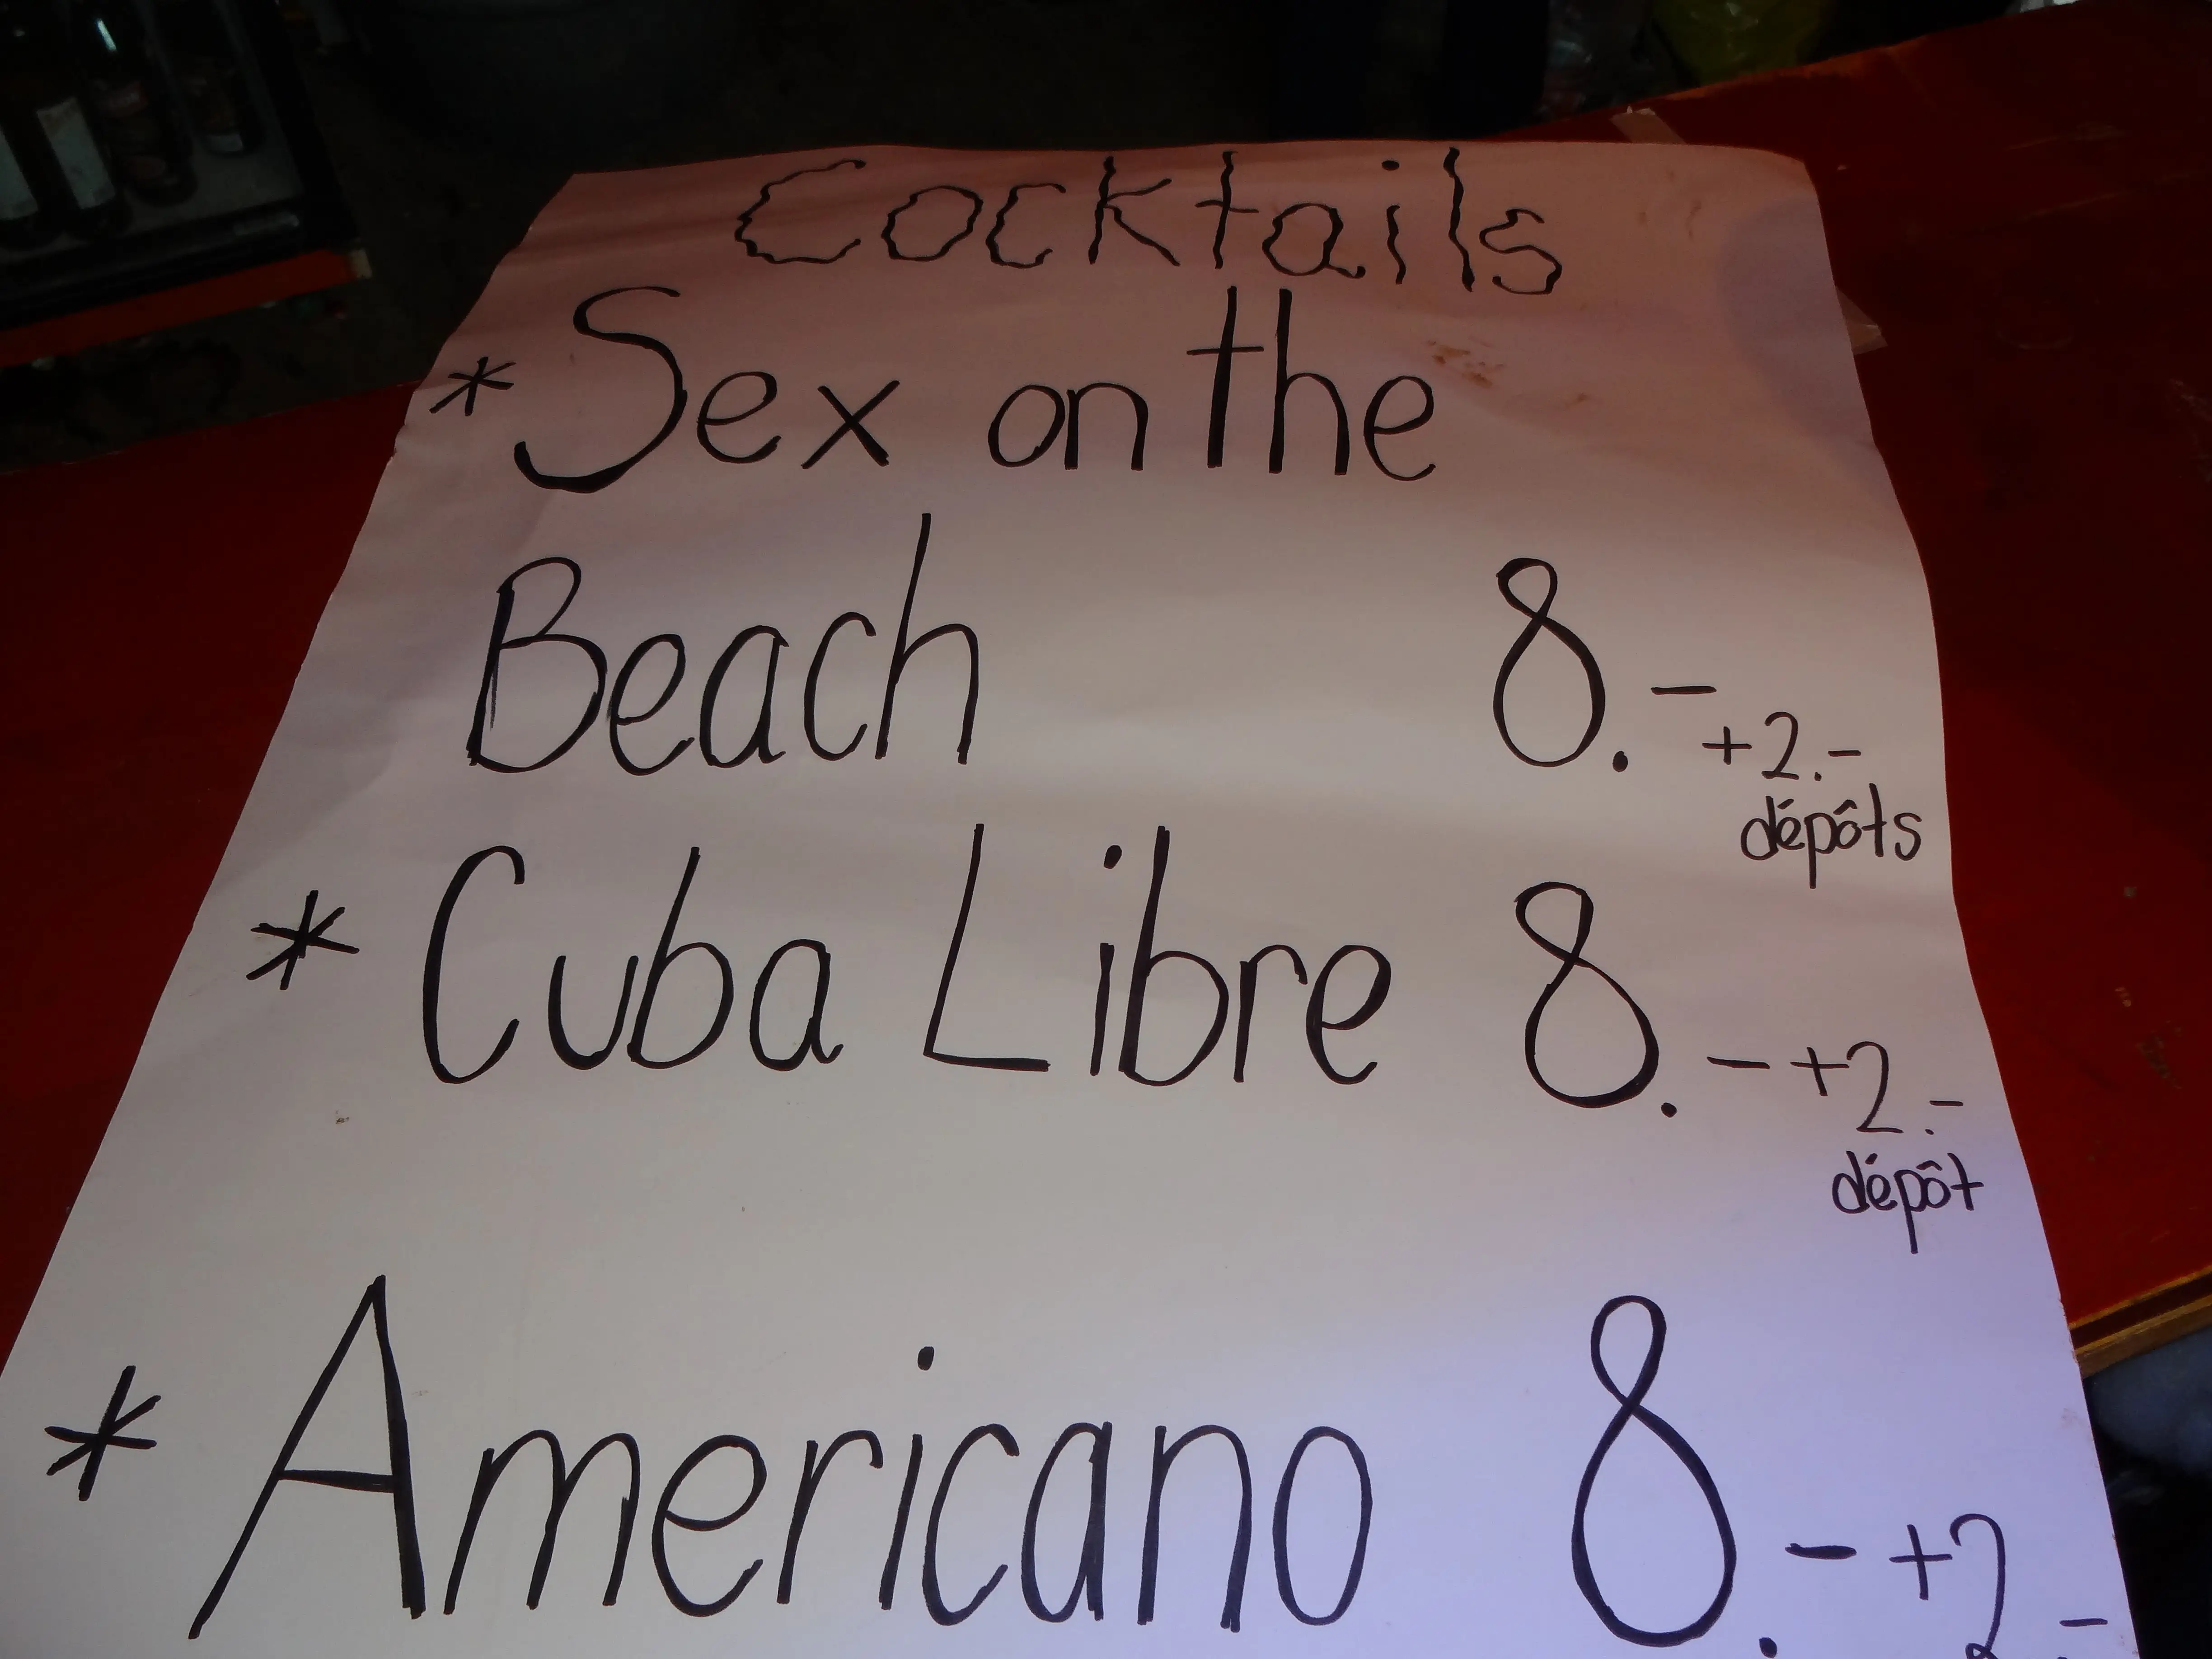 Cocktails
* Sex on the
Beach 8.- +2.-
dépôts
* Cuba Libre 8.- +2.-
dépôt
* Americano 8.- +2.-